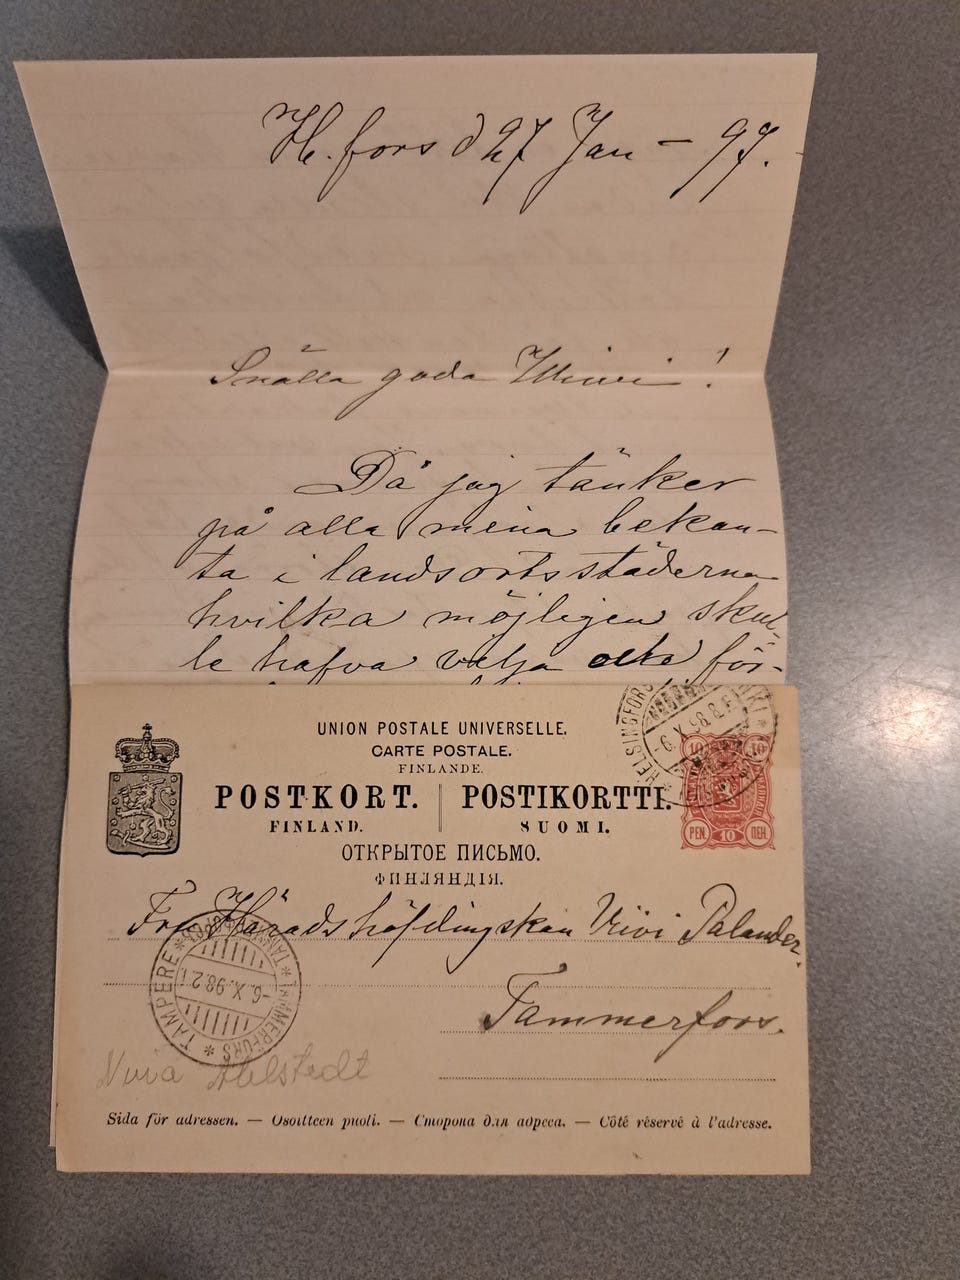 H.fors d 27 Jan – 97.
Snälla goda Wiwi!
Då jag tänker
på alla mina bekan-
ta i landsortsstäderna
hvilka möjligen skul-
le hafva velja för-
UNION POSTALE UNIVERSELLE.
CARTE POSTALE.
FINLANDE.
POSTKORT. POSTIKORTTI.
FINLAND. SUOMI.
ОТКРЫТОЕ ПИСЬМО.
ФИНЛЯНДІЯ.
HELSINGFORS
-6.X.98.8.F
10 10
PEN. 10 ПЕН.
Häradshöfdingskan Viivi Palander.
Tammerfors.
TAMPERE * TAMMERFORS *
-6.X.98.2 I
Ahlstedt
Sida för adressen. — Osoitteen puoli. — Сторона для адреса. — Côté réservé à l'adresse.